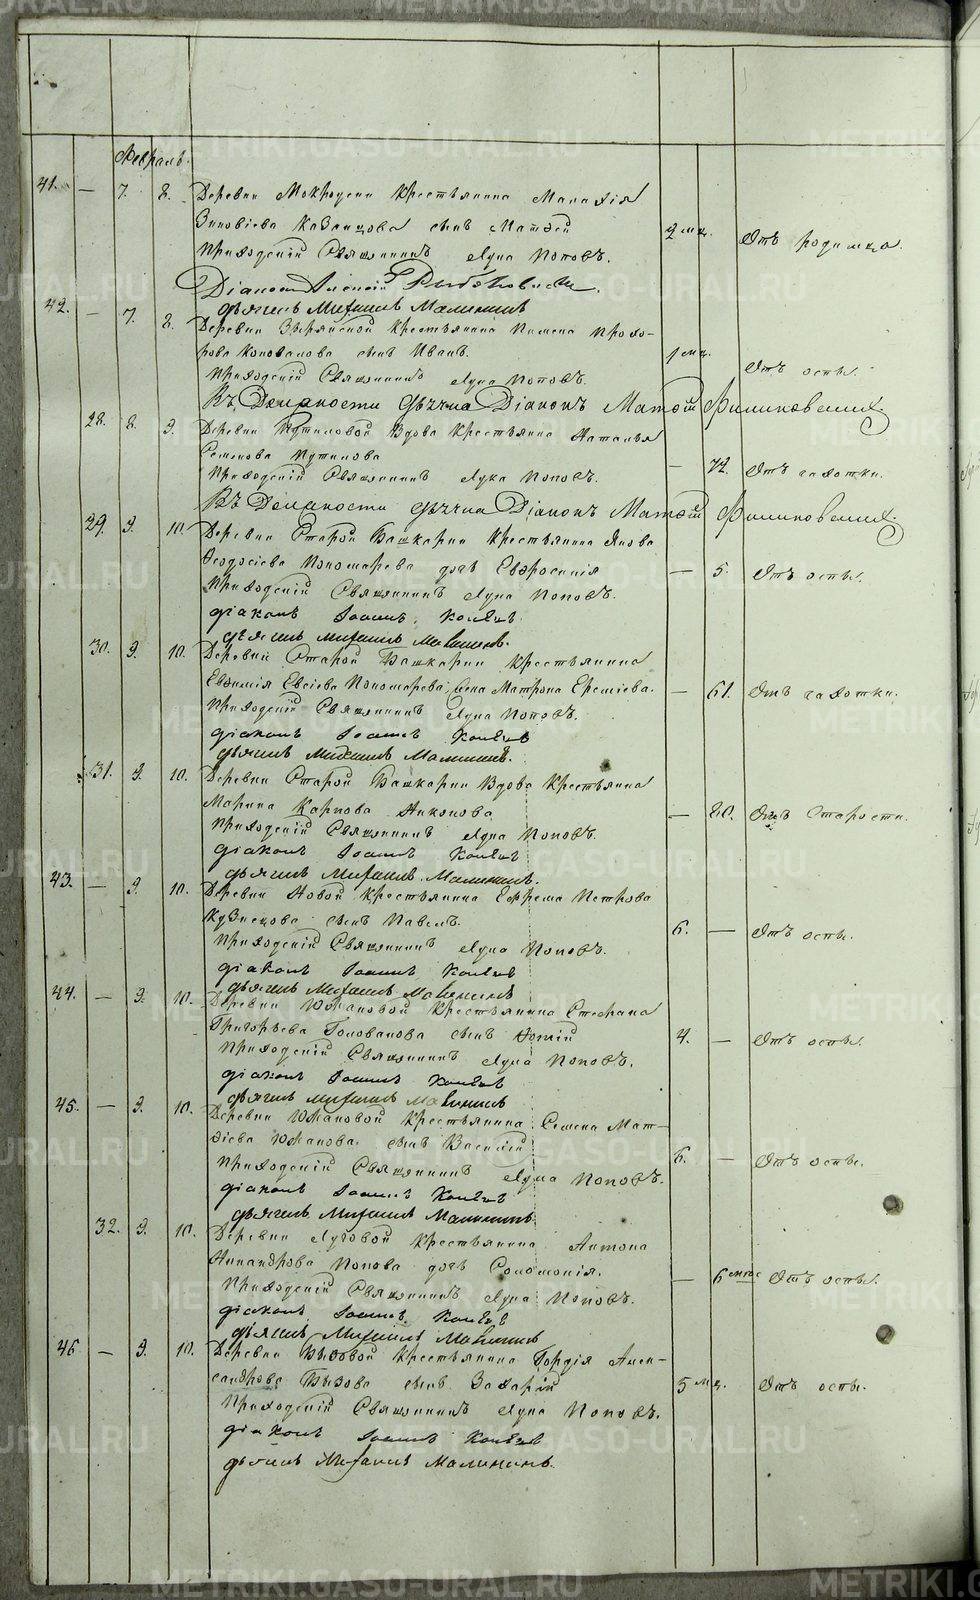 Февраль.
41. — 7. 8. Деревни Мокродени Крестьянина Малахія
Зиновіева Казанцова сынъ Матѳей 2 мц. Отъ родимца.
Приходскій Священникъ Лука Поповъ.
Діаконъ Алексій
дьячекъ Михаилъ Малининъ
42. — 7. 8. Деревни Зырянской Крестьянина Пимена Прохо-
рова Коновалова сынъ Иванъ. 1 мц. Отъ оспы.
Приходскій Священникъ Лука Поповъ.
Въ Должности Дьячка Діаконъ Матѳій
28. 8. 9. Деревни Путиловой Вдова Крестьянина Наталья
Семенова Путилова — 72. Отъ чахотки.
Приходскій Священникъ Лука Поповъ.
Въ Должности Дьячка Діаконъ Матѳій
29. 9. 10. Деревни Старой Башкарки Крестьянина Якова
Ѳеодосіева Пономарева дочь Евфросинія — 5. Отъ оспы.
Приходскій Священникъ Лука Поповъ.
діаконъ Іоаннъ
дьячекъ Михаилъ Малининъ.
30. 9. 10. Деревни Старой Башкарки Крестьянина
Евфимія Евсіева Пономарева жена Матрона Ереміева. — 61. Отъ чахотки.
Приходскій Священникъ Лука Поповъ.
діаконъ Іоаннъ
дьячекъ Михаилъ Малининъ.
31. 9. 10. Деревни Старой Башкарки Вдова Крестьянина
Марина Карпова Анкопова — 80. Отъ Старости.
Приходскій Священникъ Лука Поповъ.
діаконъ Іоаннъ
дьячекъ Михаилъ Малининъ.
43. — 9. 10. Деревни Новой Крестьянина Ефрема Петрова
Кузнецова сынъ Павелъ. 6. — Отъ оспы.
Приходскій Священникъ Лука Поповъ.
діаконъ Іоаннъ
дьячекъ Михаилъ Малининъ
44. — 9. 10. Деревни Южаковой Крестьянина Стефана
Григорьева Голованова сынъ 4. — Отъ оспы.
Приходскій Священникъ Лука Поповъ.
діаконъ Іоаннъ
дьячекъ Михаилъ Малининъ
45. — 9. 10. Деревни Южаковой Крестьянина Семена Мат-
ѳіева Южакова сынъ Василій 6. — Отъ оспы.
Приходскій Священникъ Лука Поповъ.
діаконъ Іоаннъ
дьячекъ Михаилъ Малининъ
32. 9. 10. Деревни Луговой Крестьянина Антона
Никандрова Попова дочь Соломонія. — 6 Отъ оспы.
Приходскій Священникъ Лука Поповъ.
діаконъ Іоаннъ
дьячекъ Михаилъ Малининъ
46 — 9. 10. Деревни Бызовой Крестьянина Гордія Алек-
сандрова Бызова сынъ Захарій 5 мц. Отъ оспы.
Приходскій Священникъ Лука Поповъ.
діаконъ Іоаннъ
дьячекъ Михаилъ Малининъ.
METRIKI.GASO-URAL.RU